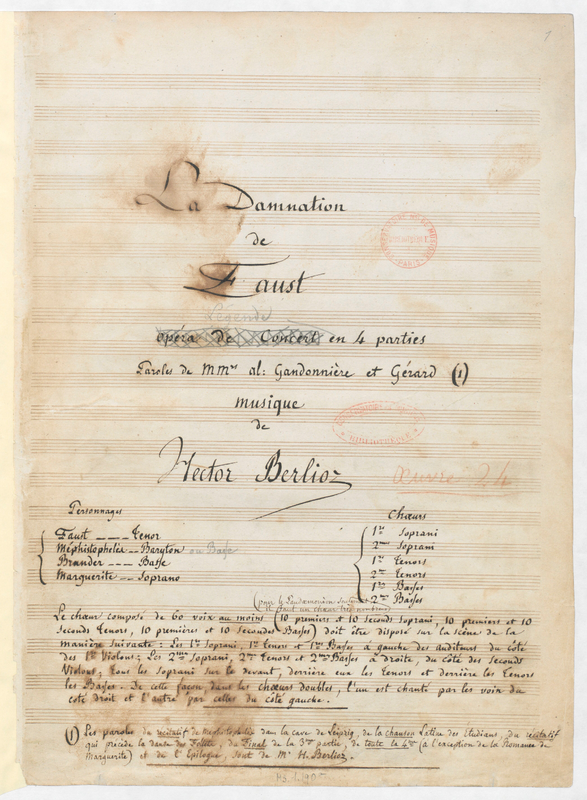 1
La Damnation
de
Faust
Légende
opéra de Concert en 4 parties
Paroles de MMrs al: Gandonnière et Gérard (1)
musique
de
Hector Berlioz
Œuvre 24
Personnages
Faust — Tenor
Méphistophelès — Baryton ou Basse
Brander — Basse
Marguerite — Soprano
Chœurs
1ers Soprani
2mes Soprani
1ers Tenors
2mes Tenors
1res Basses
2mes Basses
(pour le Pandæmonium surtout
il faut un chœur très nombreux)
Le chœur composé de 60 voix au moins (10 premiers et 10 seconds Soprani, 10 premiers et 10
Seconds Tenors, 10 premières et 10 Secondes Basses) doit être disposé sur la scène de la
manière suivante: Les 1ers Soprani, 1ers Tenors et 1res Basses à gauche des auditeurs du côté
des 1ers Violons; Les 2mes Soprani, 2mes Tenors et 2mes Basses à droite, du côté des Seconds
Violons, tous les Soprani sur le devant, derrière eux les Tenors et derrière les Tenors
les Basses. De cette façon dans les chœurs doubles, l'un est chanté par les voix du
côté droit et l'autre par celles du côté gauche.
(1) Les paroles du récitatif de Méphistophelès dans la cave de Leipzig, de la chanson Latine des Etudians, du récitatif
qui précède la danse des Follets, du Final de la 3me partie, de toute la 4me (à l'exception de la Romance de
Marguerite) et de l'Epilogue, sont de Mr H. Berlioz.